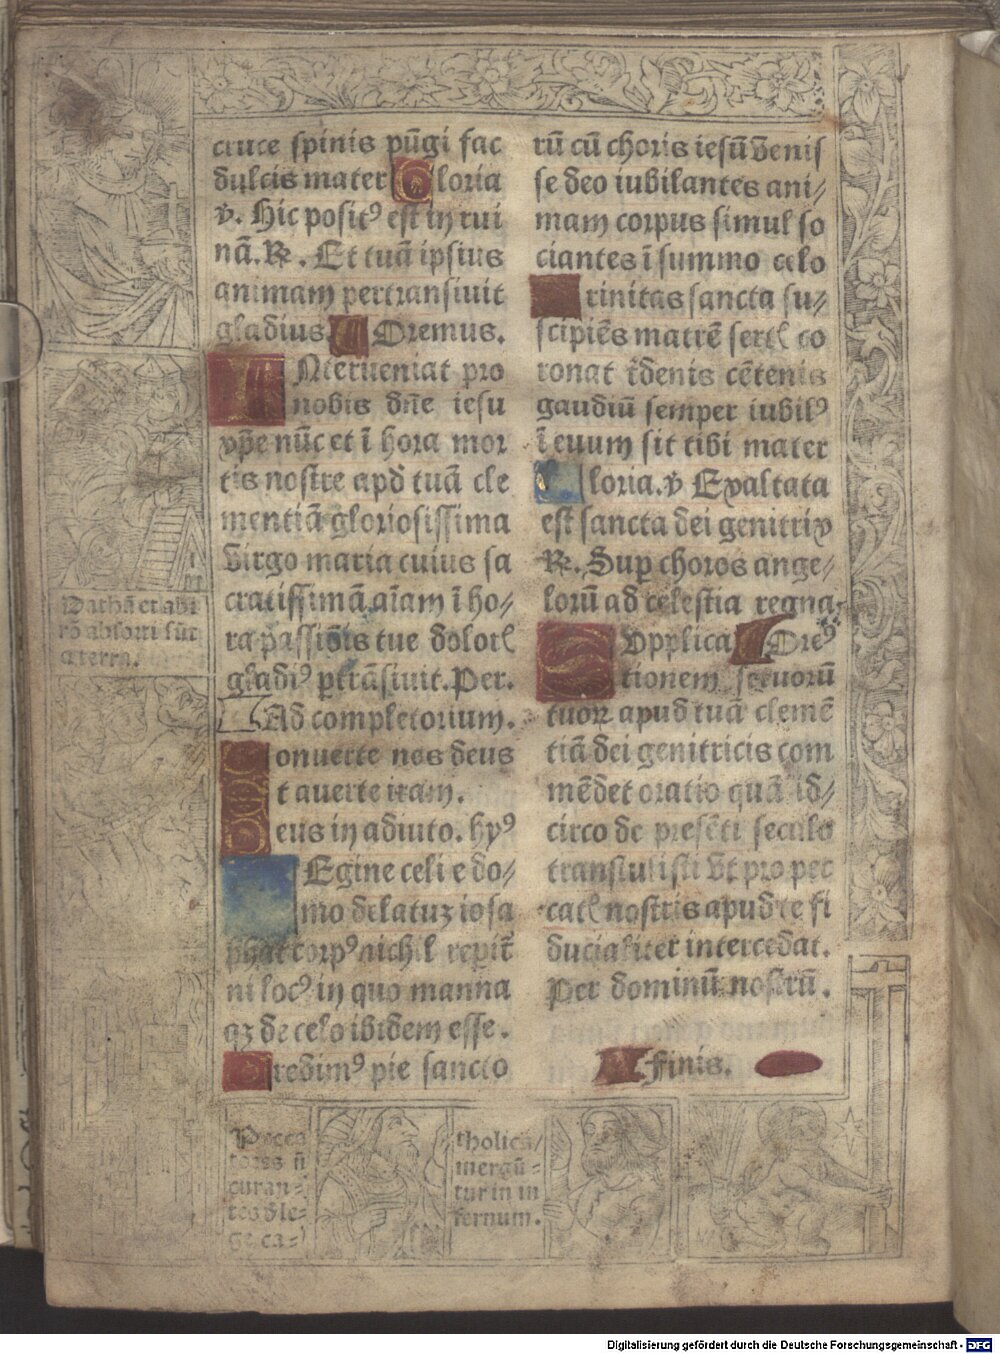 cruce spinis pūgi fac
dulcis mater Gloria
v̄. Hic positꝰ est in rui
nā. ℞. Et tuā ipsius
animam pertransiuit
gladius. Oremus.
INterueniat pro
nobis dn̄e iesu
xp̄e nūc et ī hora mor
tis nostre apd̄ tuā cle
mentiā gloriosissima
virgo maria cuius sa
cratissimā aīam ī ho⸗
ra passiōis tue dolorꝭ
gladiꝰ ꝑtrāsiuit. Per.
Ad completorium.
Conuerte nos deus
Et auerte iram.
Deus in adiuto. hyꝰ
REgine celi e do⸗
mo delatuꝫ iosa
phat corpꝰ nichil reperit̄
ni locꝰ in quo manna
qꝫ de celo ibidem esse.
Credimꝰ pie sancto
rū cū choris iesū venis
se deo iubilantes ani⸗
mam corpus simul so
ciantes ī summo celo
Trinitas sancta su⸗
scipiēs matrē sertꝭ co
ronat t̄denis cētenis
gaudiū semper iubilꝰ
ī euum sit tibi mater
Gloria. v̄ Exaltata
est sancta dei genitrix
℞. Sup̄ choros ange⸗
lorū ad celestia regna.
SUpplica Oreꝰ
tionem seruorū
tuoꝝ apud tuā clemē
tiā dei genitricis com
mēdet oratio quā id⸗
circo de presēti seculo
transtulisti vt pro pec
catꝭ nostris apud te fi
ducialiter intercedat.
Per dominū nostrū.
finis.
Dathā et abi
rō absorti sūt
a terra.
Pecca
tores n̄
curan⸗
tes d̄ le⸗
ge ca⸗
tholica
mergū⸗
tur in in
fernum.
Digitalisierung gefördert durch die Deutsche Forschungsgemeinschaft - DFG